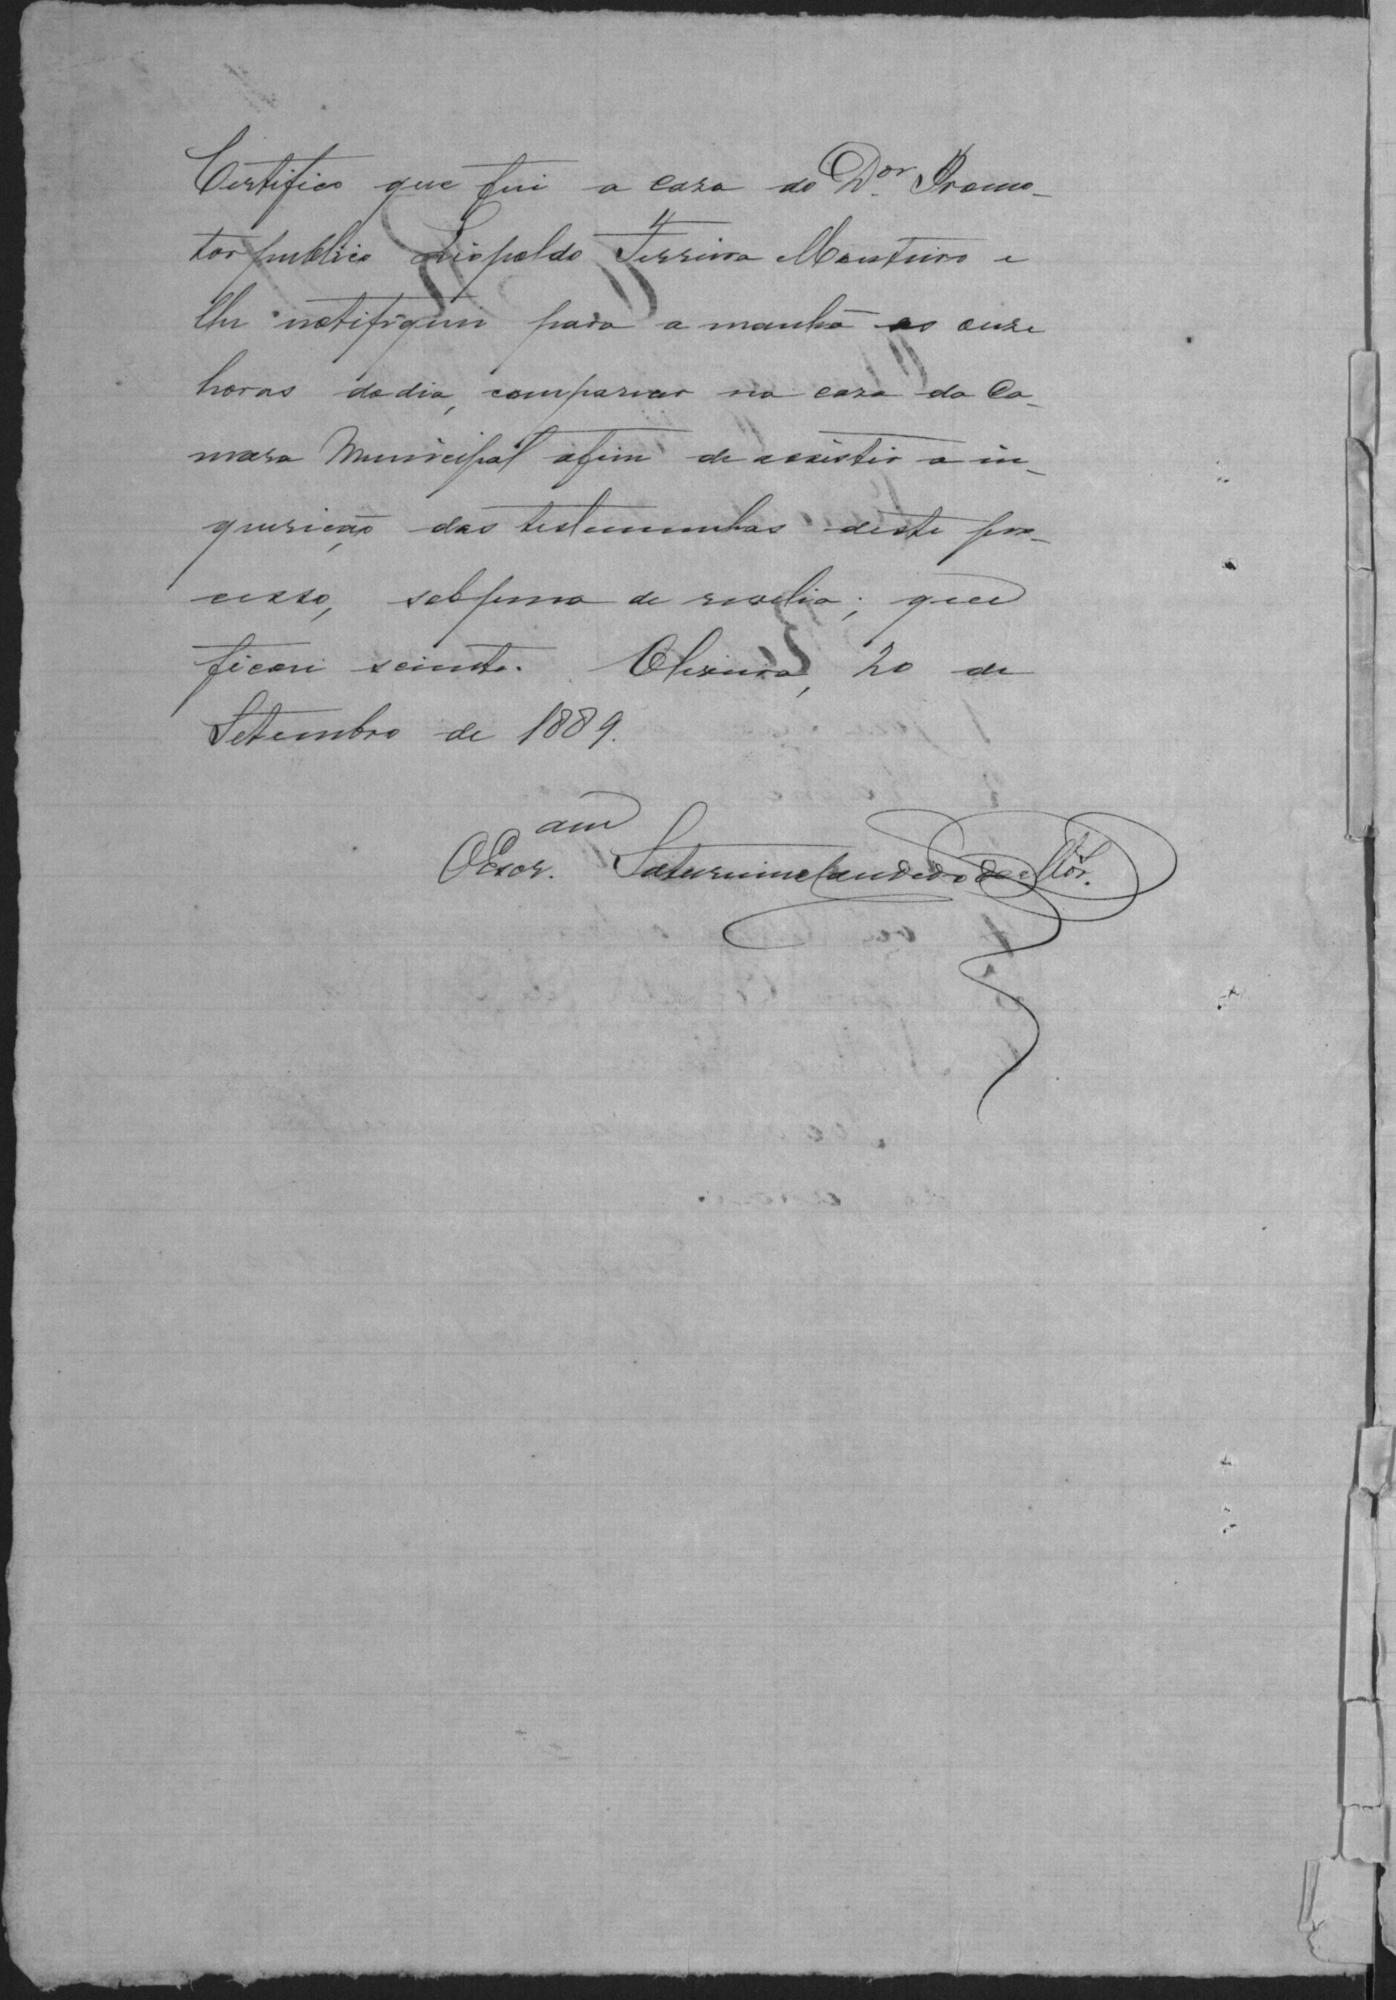 Certifico que fui a caza do Dor. Promo-
tor publico Liopoldo Ferreira Monteiro e
lhe notifiquei para a manhã as onze
horas do dia, comparecer na caza da Ca-
mara Municipal afim de assistir a in-
quirição das testemunhas deste pro-
cesso, sob pena de revelia; que
ficou sciente. Oliveira, 20 de
Setembro de 1889.
O Escr.am Saturnino Candido de